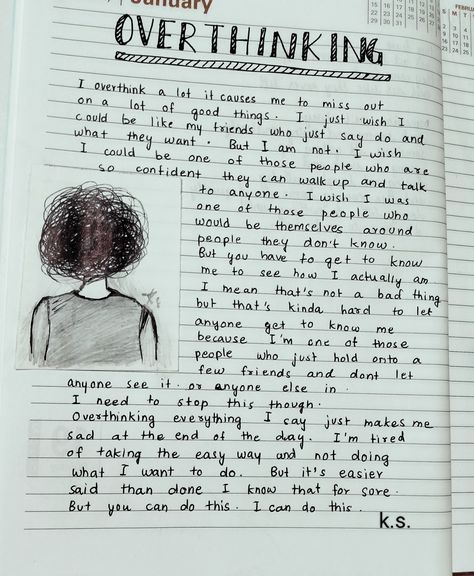 January
FEBRU
OVERTHINKING
I overthink a lot it causes me to miss out
on a lot of good things. I just wish I
could be like my friends who just say do and
what they want. But I am not. I wish
I could be one of those people who are
so confident they can walk up and talk
to anyone. I wish I was
one of those people who
would be themselves around
people they don't know.
But you have to get to know
me to see how I actually am
I mean that's not a bad thing
but that's kinda hard to let
anyone get to know me
because I'm one of those
people who just hold onto a
few friends and dont let
anyone see it. or anyone else in.
I need to stop this though.
Overthinking everything I say just makes me
sad at the end of the day. I'm tired
of taking the easy way and not doing
what I want to do. But it's easier
said than done I know that for sore.
But you can do this. I can do this.
k.s.